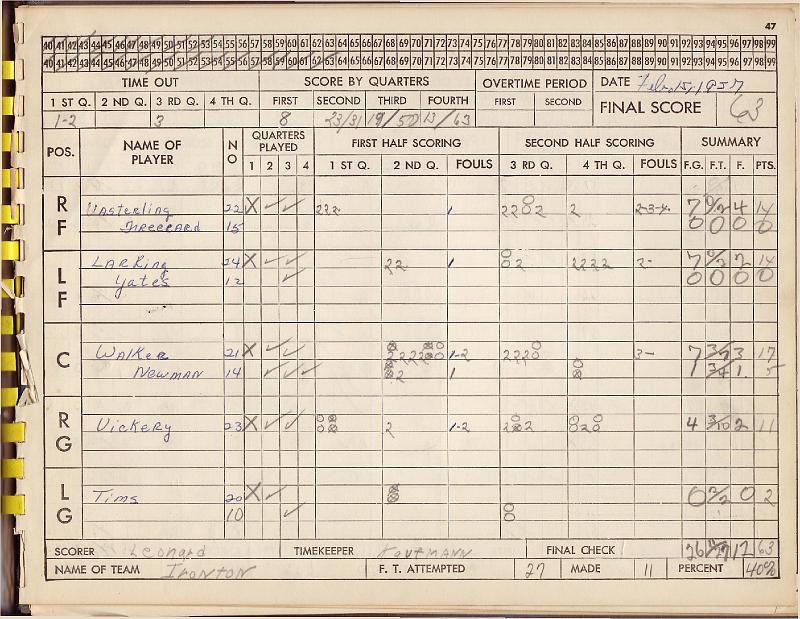 47
40 41 42 43 44 45 46 47 48 49 50 51 52 53 54 55 56 57 58 59 60 61 62 63 64 65 66 67 68 69 70 71 72 73 74 75 76 77 78 79 80 81 82 83 84 85 86 87 88 89 90 91 92 93 94 95 96 97 98 99
40 41 42 43 44 45 46 47 48 49 50 51 52 53 54 55 56 57 58 59 60 61 62 63 64 65 66 67 68 69 70 71 72 73 74 75 76 77 78 79 80 81 82 83 84 85 86 87 88 89 90 91 92 93 94 95 96 97 98 99
TIME OUT SCORE BY QUARTERS OVERTIME PERIOD DATE Feb. 15, 1957
1 ST Q. 2 ND Q. 3 RD Q. 4 TH Q. FIRST SECOND THIRD FOURTH FIRST SECOND FINAL SCORE 63
1-2 3 8 23/31 19/50 13/63
POS. NAME OF PLAYER NO QUARTERS PLAYED 1 2 3 4 FIRST HALF SCORING 1 ST Q. 2 ND Q. FOULS SECOND HALF SCORING 3 RD Q. 4 TH Q. FOULS SUMMARY F.G. F.T. F. PTS.
RF Vasterling 22 X ✓ ✓ 222 1 22O2 2 2-3-4 7 0/2 4 14
15 0 0 0 0
LF Larking 24 X ✓ ✓ 22 1 O2 2222 2- 7 2 14
Yates 12 ✓ 0 0 0 0
C Walker 21 X ✓ ✓ 1-2 222O 3- 7 3/7 3 17
Newman 14 ✓ ✓ ✓ 2 1 1 3/4 1 5
RG Vickery 23 X ✓ ✓ 2 1-2 4 3/10 2 11
LG Tims 20 X ✓ 0 2/2 0 2
10 ✓
SCORER Leonard TIMEKEEPER Kaufmann FINAL CHECK 26 11/27 12 63
NAME OF TEAM Ironton F. T. ATTEMPTED 27 MADE 11 PERCENT 40%